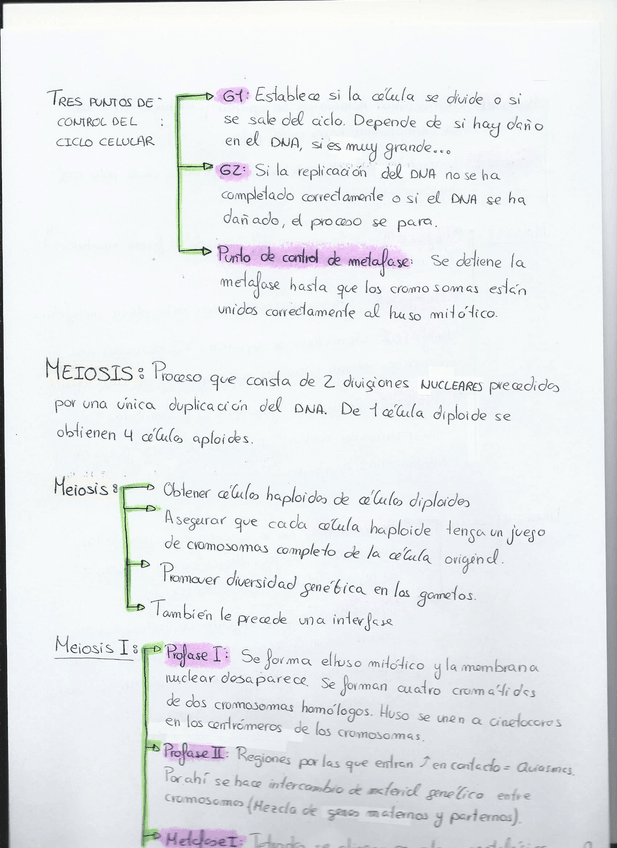 TRES PUNTOS DE
CONTROL DEL :
CICLO CELULAR
G1: Establece si la célula se divide o si
se sale del ciclo. Depende de si hay daño
en el DNA, si es muy grande...
G2: Si la replicación del DNA no se ha
completado correctamente o si el DNA se ha
dañado, el proceso se para.
Punto de control de metafase: Se detiene la
metafase hasta que los cromosomas están
unidos correctamente al huso mitótico.
MEIOSIS: Proceso que consta de 2 divisiones NUCLEARES precedidas
por una única duplicación del DNA. De 1 célula diploide se
obtienen 4 células aploides.
Meiosis:
Obtener células haploides de células diploides
Asegurar que cada célula haploide tenga un juego
de cromosomas completo de la célula original.
Promover diversidad genética en los gametos.
También le precede una interfase
Meiosis I:
Profase I: Se forma el huso mitótico y la membrana
nuclear desaparece. Se forman cuatro cromátidas
de dos cromosomas homólogos. Huso se unen a cinetocoros
en los centrómeros de los cromosomas.
Profase II: Regiones por las que entran ↑ en contacto = Quiasmas.
Por ahí se hace intercambio de material genético entre
cromosomas (Mezcla de genes maternos y parternos).
Metafase I: